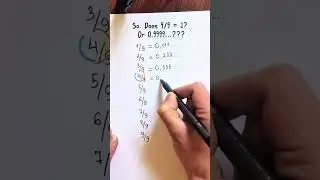 So. Does 9/9 = 1?
Or 0.9999...???
1/9 = 0,111...
2/9 = 0,222...
3/9 = 0,333...
4/9 = 0
5/9
6/9
7/9
8/9
9/9
3/
4/
5/
6/
7/